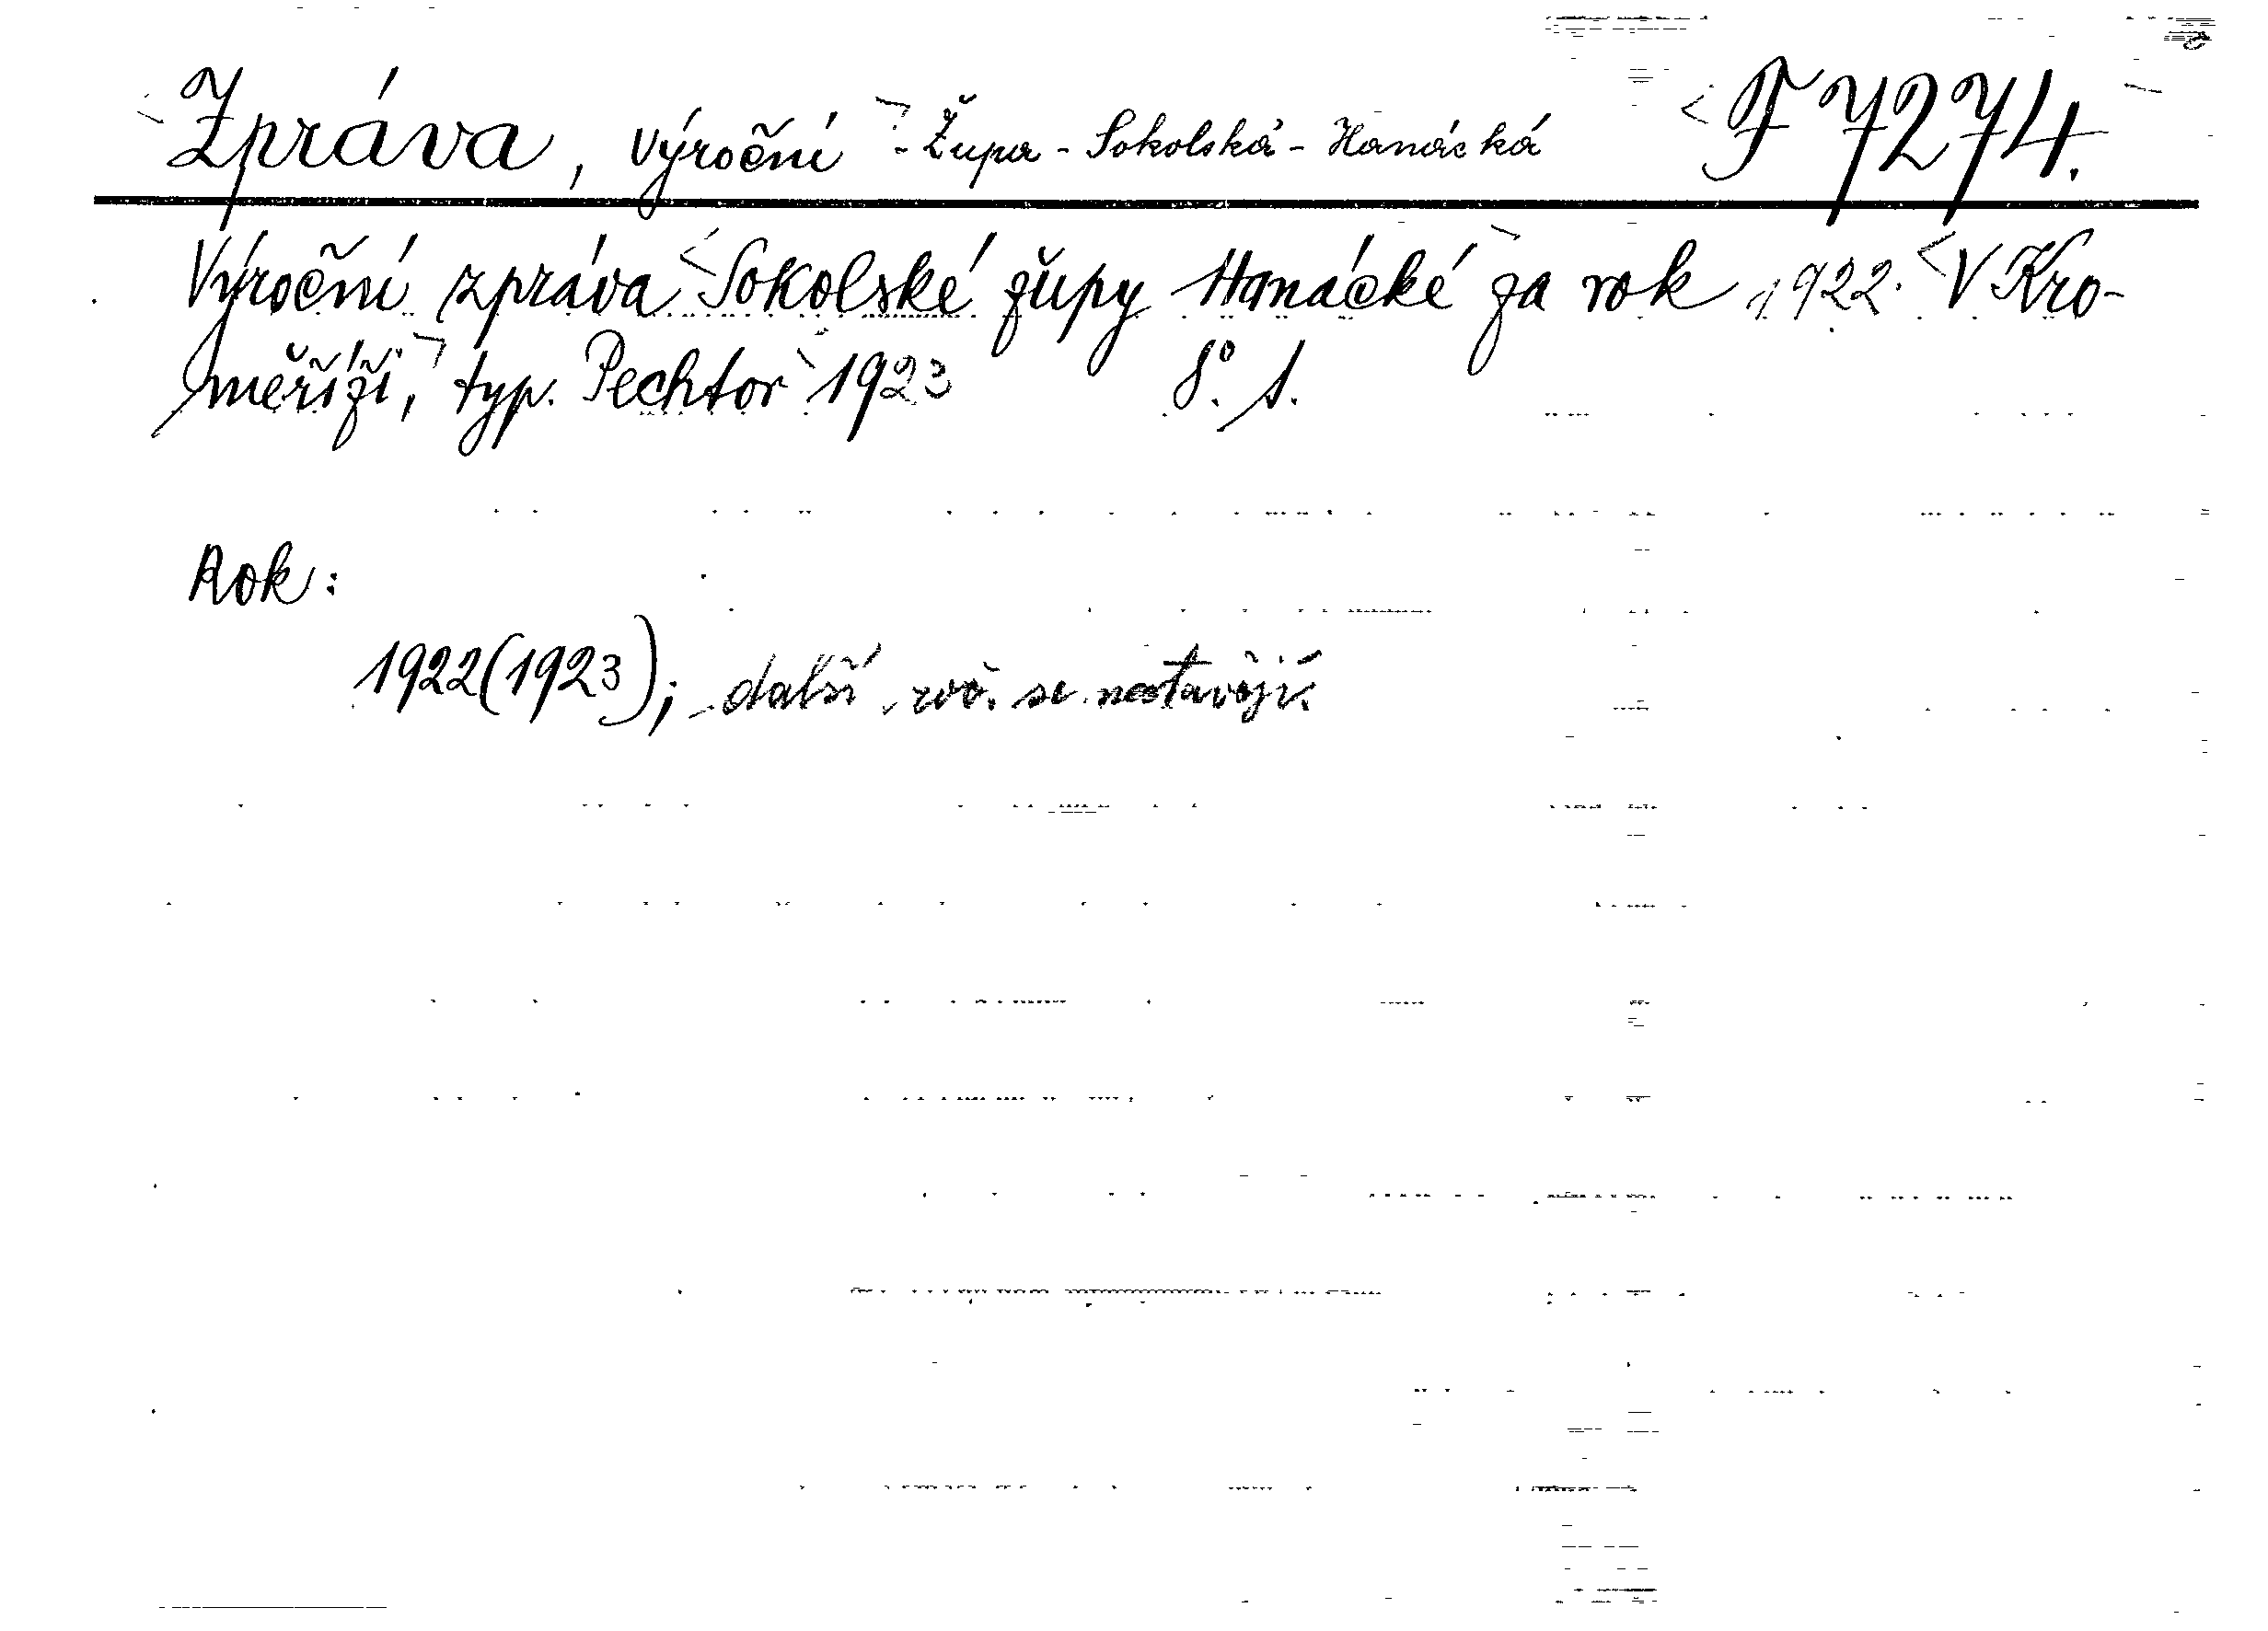 Zpráva, výroční - Župa - Sokolská - Hanácká F 7274.
Výroční zpráva Sokolské župy Hanácké za rok 1922. V Kro-
měříži, typ. Pechtor 1923 8°. 1.
Rok:
1922(1923); další roč. se nestavějí.